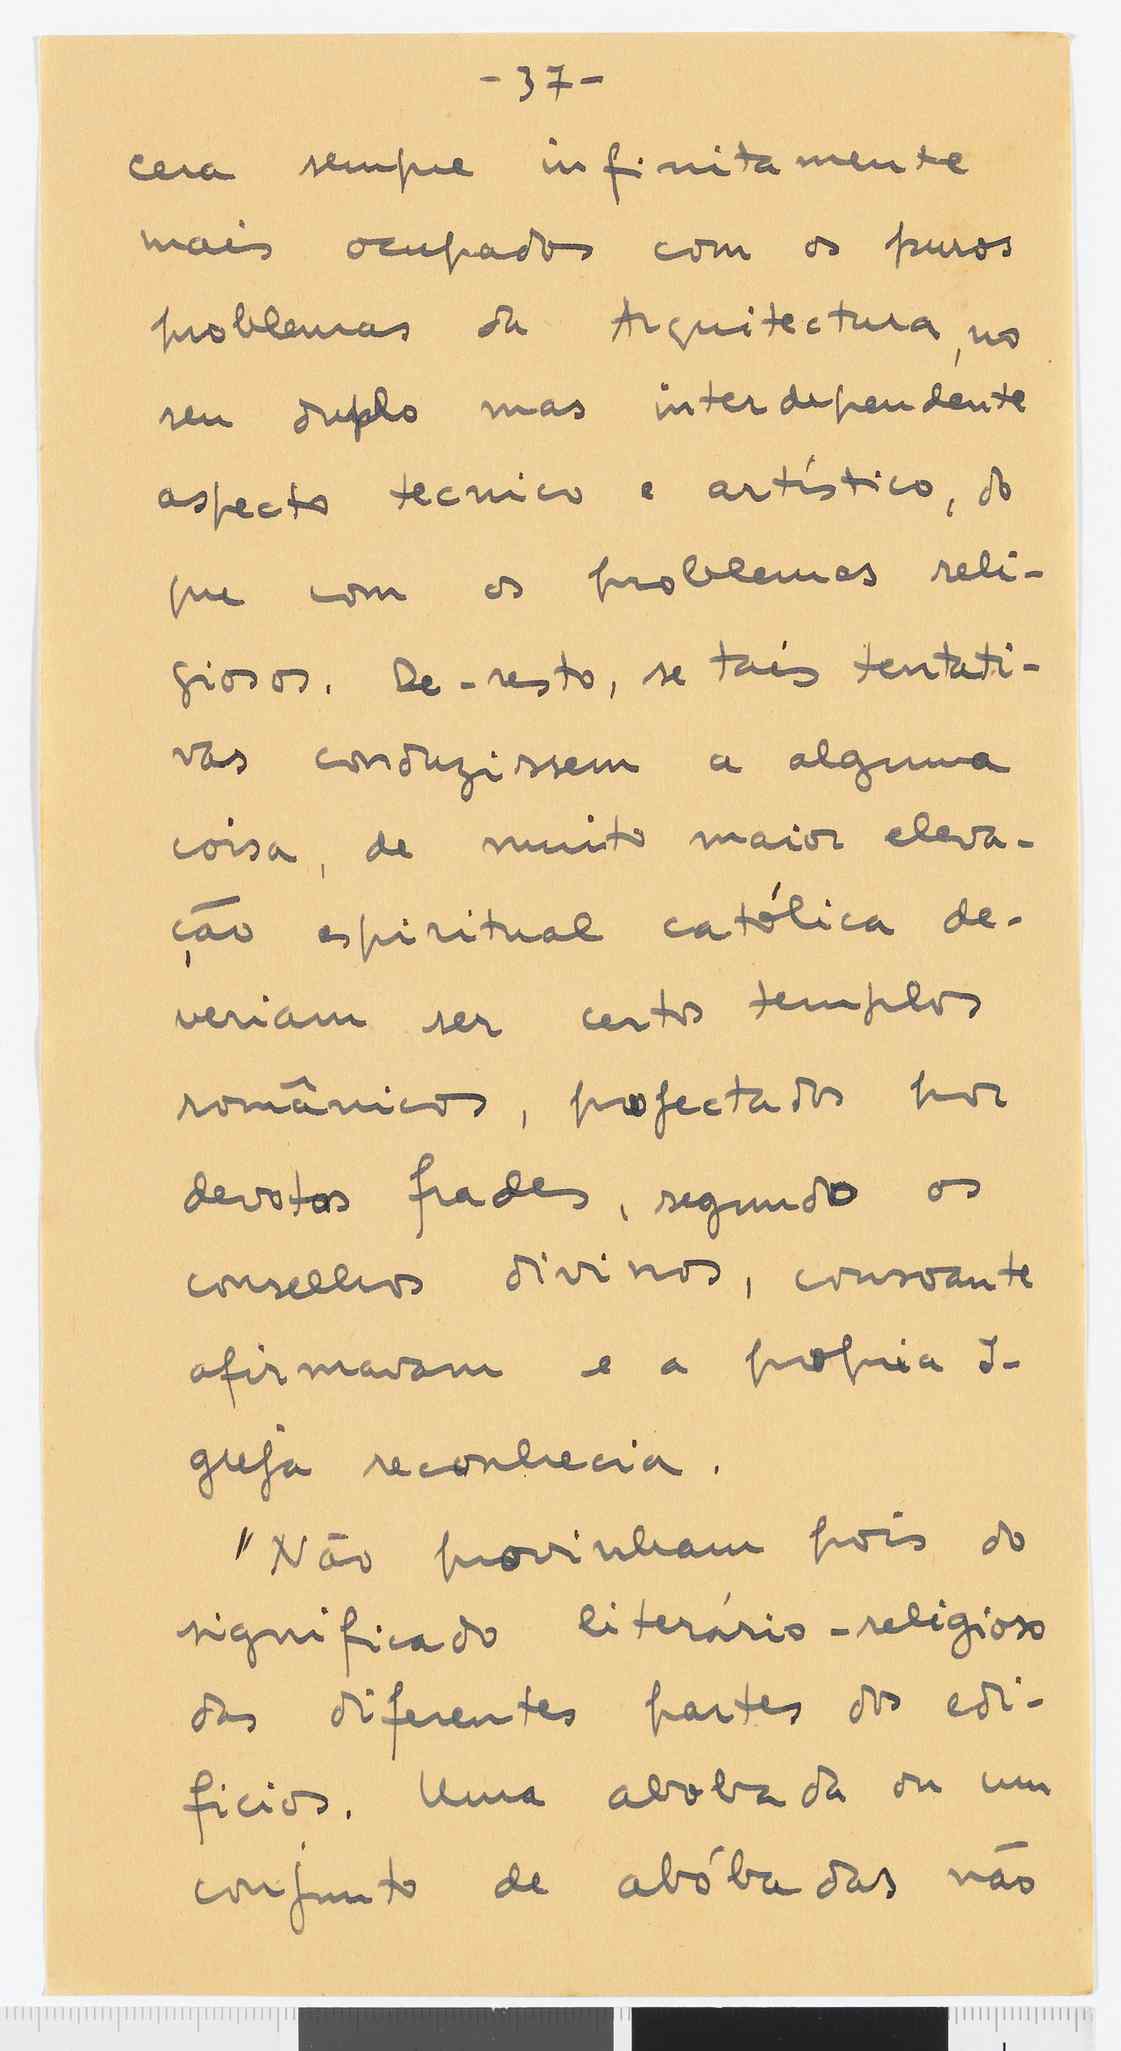 - 37 -
cera sempre infinitamente
mais ocupados com os puros
problemas da Arquitectura, no
seu duplo mas interdependente
aspecto tecnico e artístico, do
que com os problemas reli-
giosos. De-resto, se tais tentati-
vas conduzissem a alguma
coisa, de muito maior eleva-
ção espiritual católica de-
veriam ser certos templos
românicos, projectados por
devotos frades, segundo os
conselhos divinos, consoante
afirmavam e a propria I-
greja reconhecia.
"Não provinham pois do
significado literário-religioso
das diferentes partes dos edi-
ficios. Uma abobada ou um
conjunto de abóbadas não